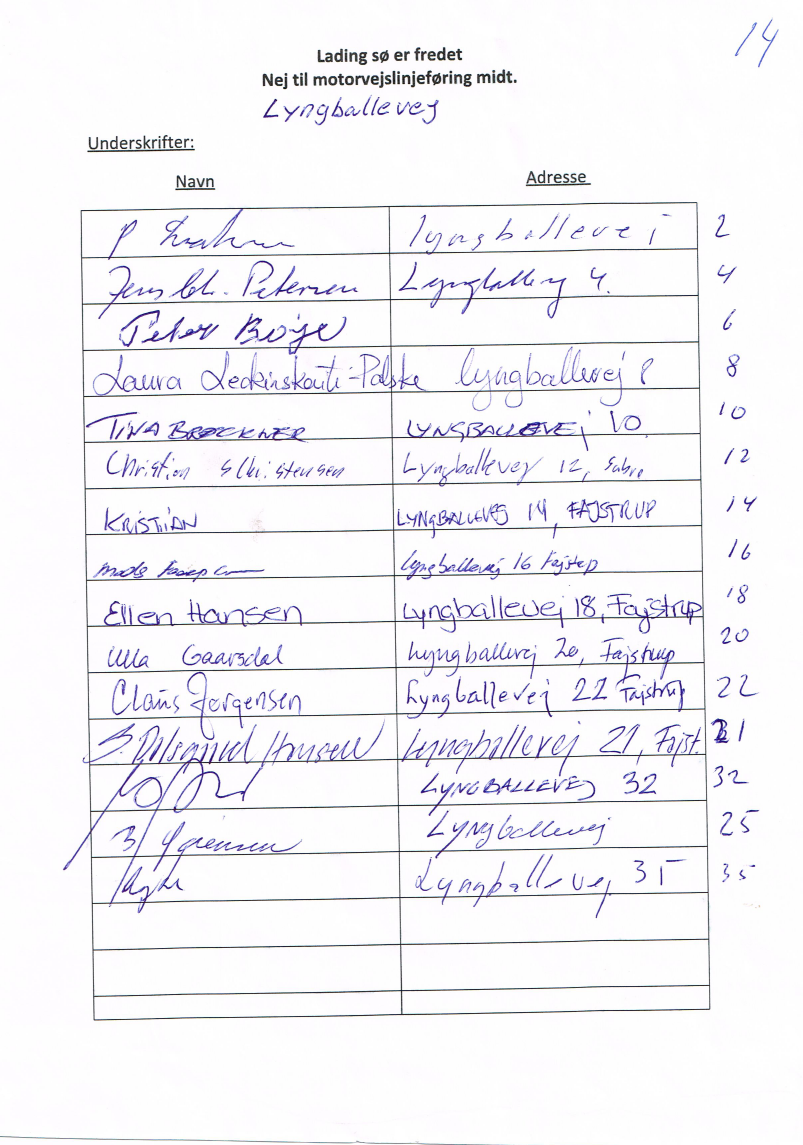 14
Lading sø er fredet
Nej til motorvejslinjeføring midt.
Lyngballevej
Underskrifter:
Navn Adresse
P lyngballevej 2
Jens Chr. Petersen Lyngballevej 4. 4
Peter Boye 6
Laura lyngballevej 8 8
TINA BRØCKNER LYNGBALLEVEJ 10 10
Christian Christensen Lyngballevej 12, Sabro 12
KRISTIAN LYNGBALLEVEJ 14, FAJSTRUP 14
Mads Lyngballevej 16 Fajstrup 16
Ellen Hansen Lyngballevej 18, Fajstrup 18
Ulla Gaarsdal Lyngballevej 20, Fajstrup 20
Claus Jørgensen Lyngballevej 22 Fajstrup 22
Hansen Lyngballevej 21, Fajst. 21
LYNGBALLEVEJ 32 32
Lyngballevej 25
Lyngballevej 35 35